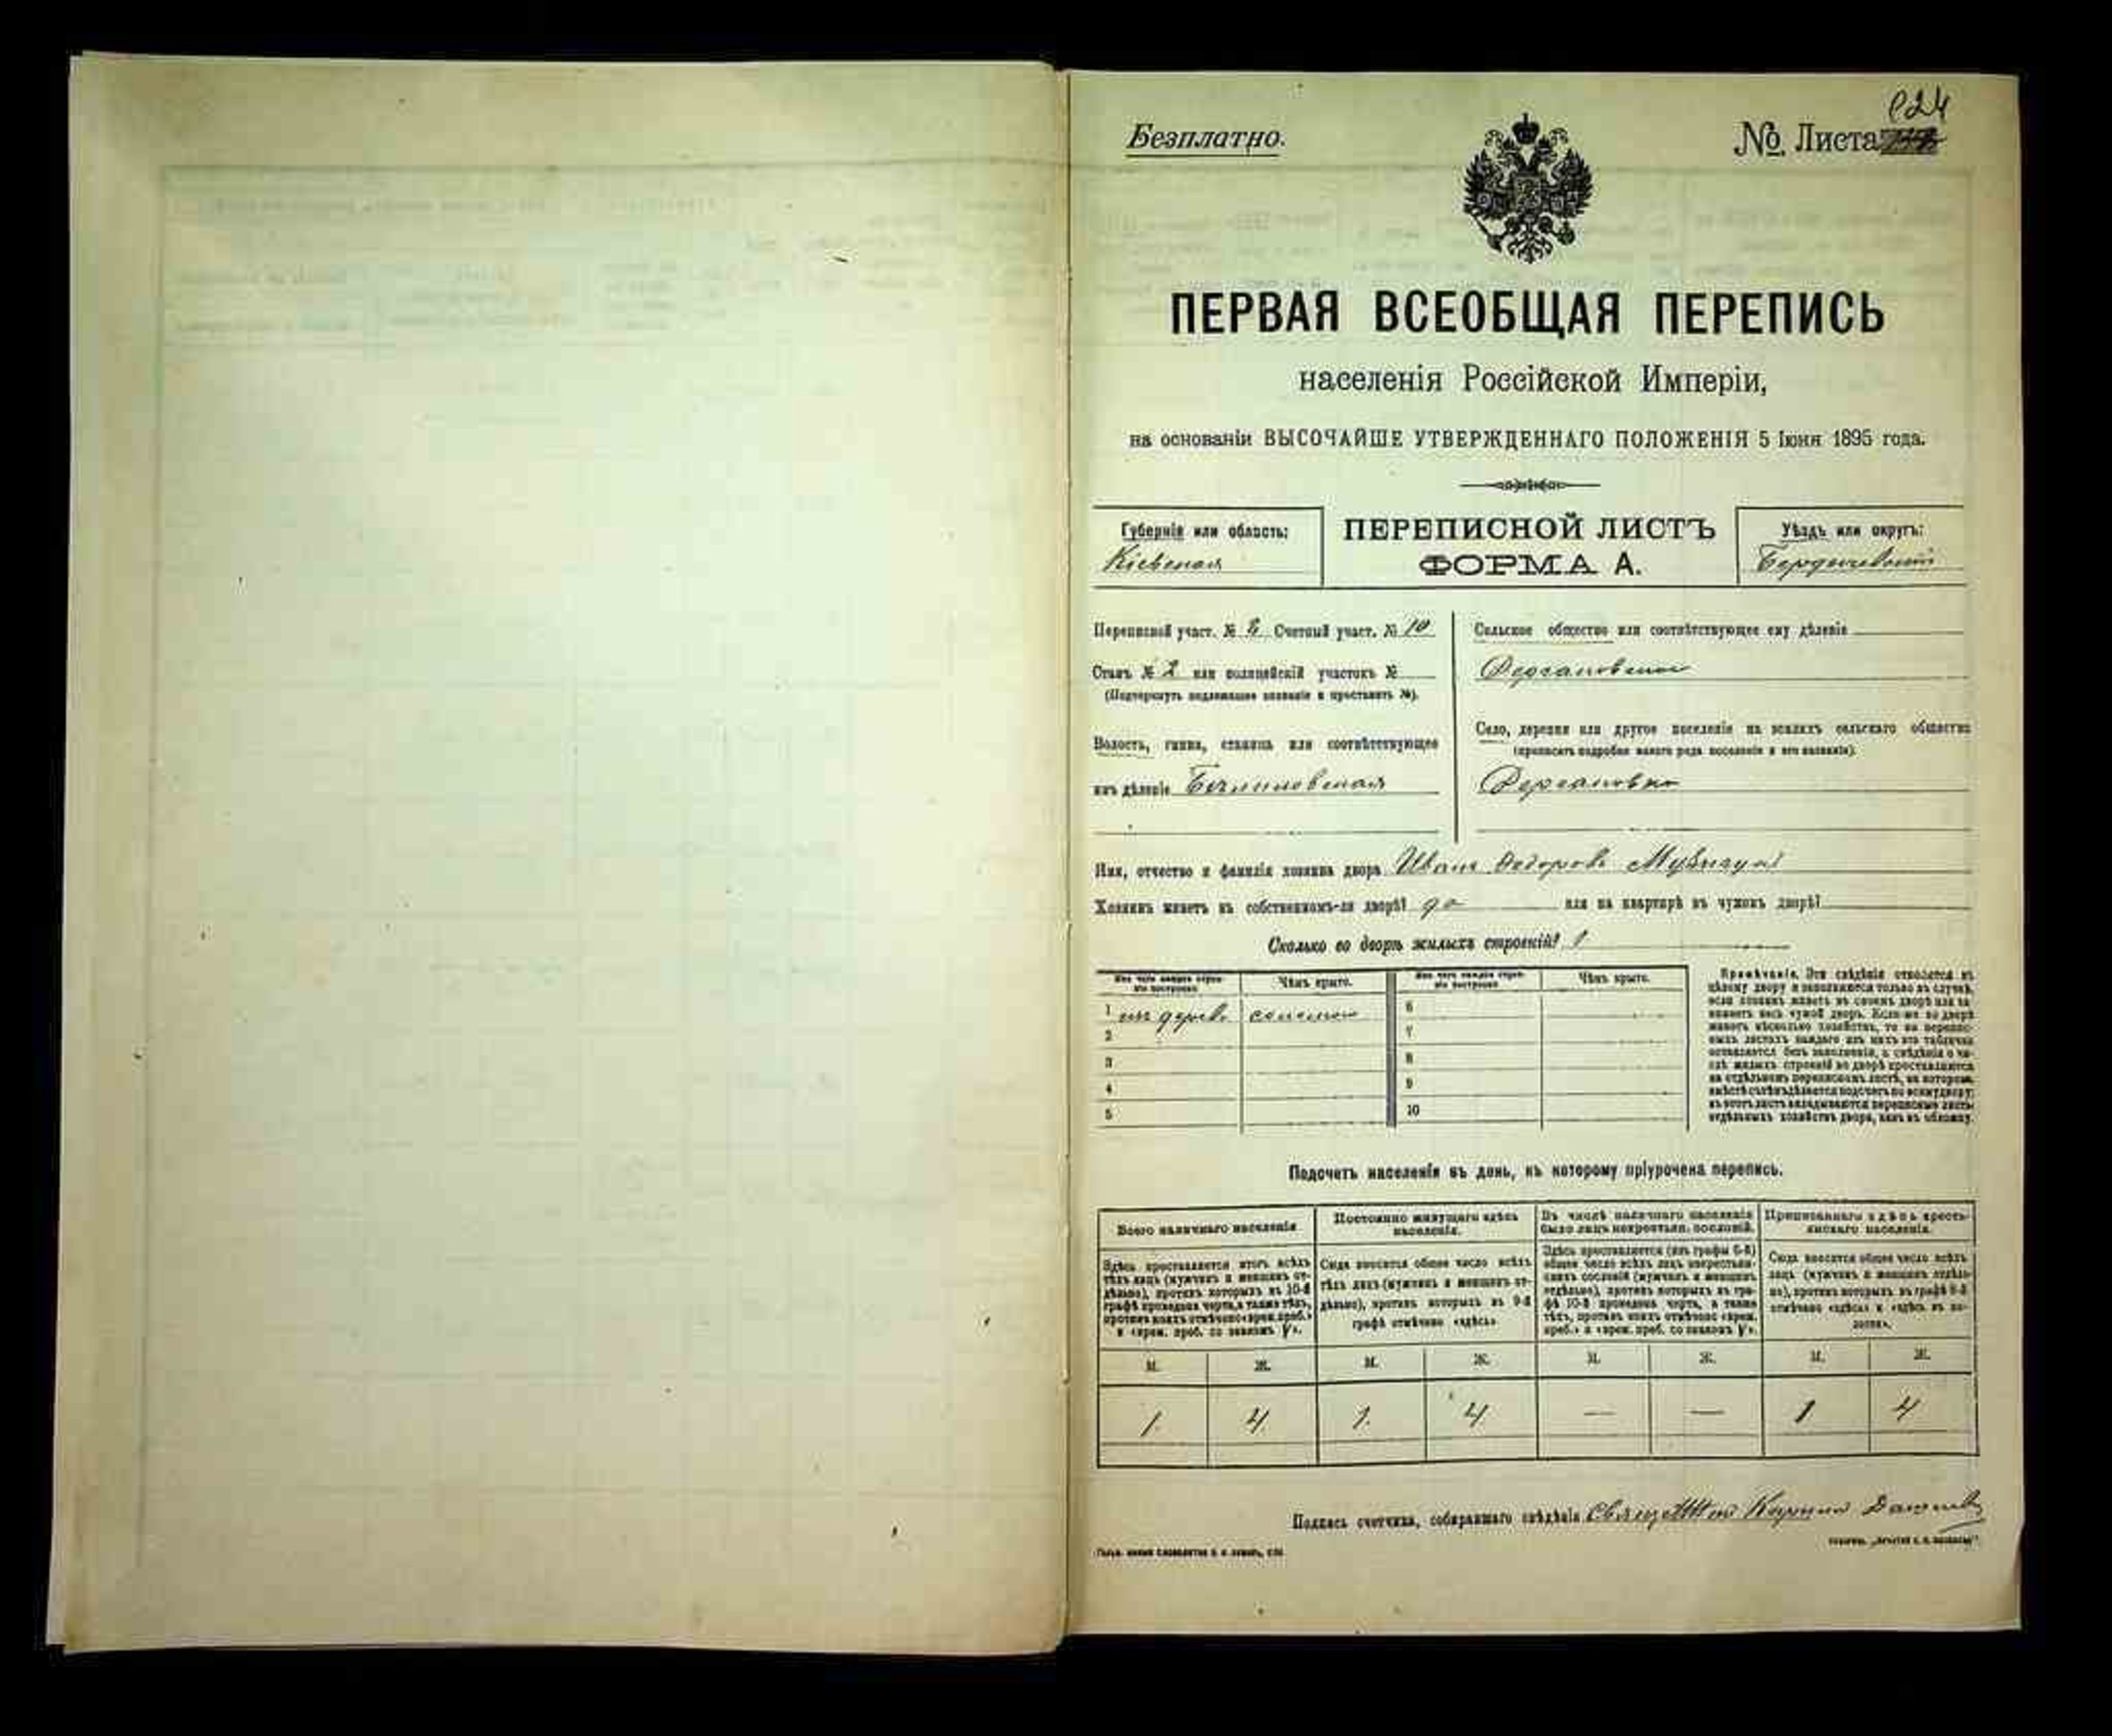 Безплатно.
№ Листа
ПЕРВАЯ ВСЕОБЩАЯ ПЕРЕПИСЬ
населенія Россійской Имперіи,
на основаніи ВЫСОЧАЙШЕ УТВЕРЖДЕННАГО ПОЛОЖЕНІЯ 5 Іюня 1895 года.
Губернія или область:
Кіевская
ПЕРЕПИСНОЙ ЛИСТЪ
ФОРМА А.
Уѣздъ или округъ:
Бердичевскій
Переписной участ. № Счетный участ. № 10
Станъ № 2 или полицейскій участокъ №
(Подчеркнуть надлежащее названіе и проставить №).
Волость, гмина, станица или соотвѣтствующее
имъ дѣленіе
Сельское общество или соотвѣтствующее ему дѣленіе
Село, деревня или другое поселеніе на земляхъ сельскаго общества
(прописать подробно какого рода поселеніе и его названіе).
Имя, отчество и фамилія хозяина двора Иванъ Федоровъ
Хозяинъ живетъ въ собственномъ-ли дворѣ? да или на квартирѣ въ чужомъ дворѣ?
Сколько во дворѣ жилыхъ строеній? 1
Изъ чего каждое строе-
ніе построено.
Чѣмъ крыто.
Изъ чего каждое строе-
ніе построено.
Чѣмъ крыто.
1 изъ дерева соломою
2
3
4
5
6
7
8
9
10
Примѣчаніе. Эти свѣдѣнія относятся къ
цѣлому двору и заполняются только въ случаѣ,
если хозяинъ живетъ въ своемъ дворѣ или за-
нимаетъ весь чужой дворъ. Если-же во дворѣ
живетъ нѣсколько хозяйствъ, то на перепис-
ныхъ листахъ каждаго изъ нихъ эта табличка
оставляется безъ заполненія, а свѣдѣнія о чи-
слѣ жилыхъ строеній во дворѣ проставляются
на отдѣльномъ переписномъ листѣ, на которомъ
вмѣстѣ съ тѣмъ дѣлается подсчетъ по всему двору;
въ этотъ листъ вкладываются переписные листы
отдѣльныхъ хозяйствъ двора, какъ въ обложку.
Подсчетъ населенія въ день, къ которому пріурочена перепись.
Всего наличнаго населенія
Постоянно живущаго здѣсь
населенія.
Въ числѣ наличнаго населенія
было лицъ некрестьян. сословій.
Приписаннаго здѣсь кресть-
янскаго населенія.
Здѣсь проставляется итогъ всѣхъ
тѣхъ лицъ (мужчинъ и женщинъ от-
дѣльно), противъ которыхъ въ 10-й
графѣ проведена черта, а также тѣхъ,
противъ коихъ отмѣчено «врем. преб.»
и «врем. преб. со знакомъ V».
Сюда вносится общее число всѣхъ
тѣхъ лицъ (мужчинъ и женщинъ от-
дѣльно), противъ которыхъ въ 9-й
графѣ отмѣчено «здѣсь».
Здѣсь проставляется (изъ графы 6-й)
общее число всѣхъ лицъ некрестьян-
скихъ сословій (мужчинъ и женщинъ
отдѣльно), противъ которыхъ въ гра-
фѣ 10-й проведена черта, а также
тѣхъ, противъ коихъ отмѣчено «врем.
преб.» и «врем. преб. со знакомъ V».
Сюда вносится общее число всѣхъ
лицъ (мужчинъ и женщинъ отдѣль-
но), противъ которыхъ въ графѣ 8-й
отмѣчено «здѣсь» и «здѣсь въ во-
лости».
М. Ж. М. Ж. М. Ж. М. Ж.
1. 4. 1. 4. — — 1 4
Подпись счетчика, собиравшаго свѣдѣнія